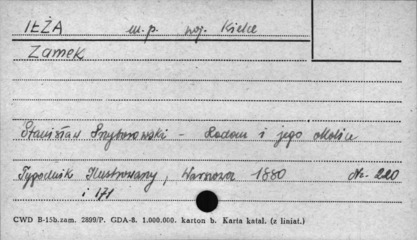 IŁŻA m.p. woj. Kielce
Zamek
Stanisław Szyborowski - Radom i jego okolice
Tygodnik Ilustrowany, Warszawa 1880 Nr. 220
i 171
CWD B-15b.zam. 2899/P. GDA-8. 1.000.000. karton b. Karta katal. (z liniat.)